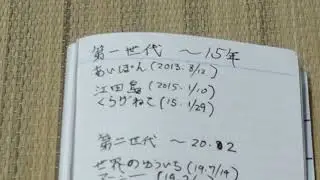 第一世代 ～15年
あいぽん (2013.8/12)
江田島 (2015.1/10)
くらげねこ (15.1/29)
第二世代 ～20.02
世界のゆういち (19.7/14)